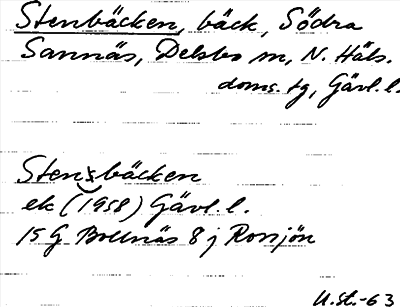 Stenbäcken, bäck, Södra
Sannäs, Delsbo sn, N. Häls.
doms. tg, Gävl. l.
Stenbäcken
ek (1958) Gävl. l.
15 G Bollnäs 8 j Rossjön
U.St.-63